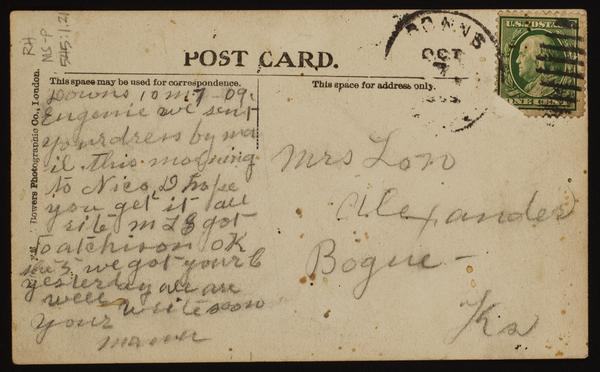 RH
MS-P
545:1.21
DOWNS
OCT
7
U.S. POSTAGE
POST CARD.
This space may be used for correspondence.
This space for address only.
Bowers Photographic Co., London.
Downs 10 m 7 - 09.
Eugenie we sent
your dress by ma
il this morning
to Nico, I hope
you get it all
rite m L S got
to atchison OK
we got your C
yesterday all are
well write soon
your
mama
Mrs Lon
Alexander
Bogue -
Ks